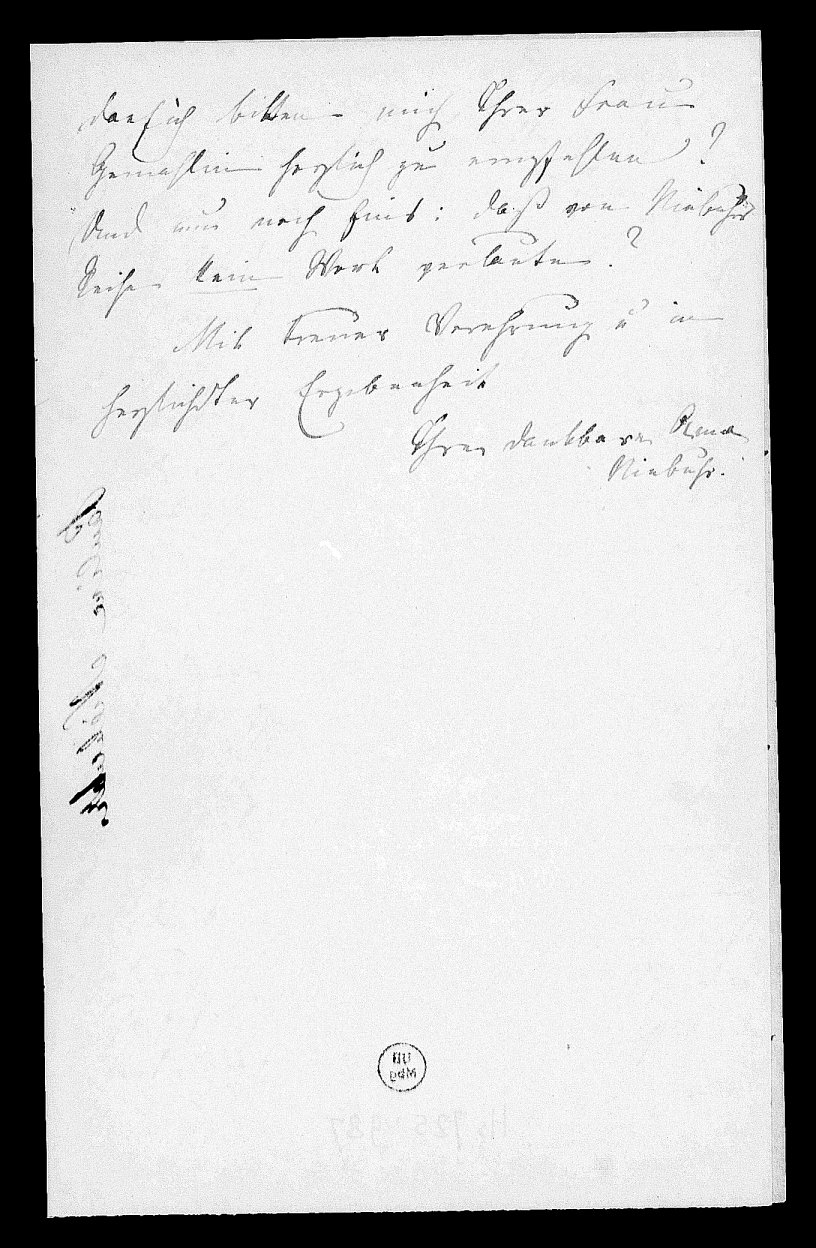 darf ich bitten mich Ihrer Frau
Gemahlin herzlich zu empfehlen?
Und nur noch Eins: daß von Niebuhrs
Reise kein Wort verlautet?
Mit treuer Verehrung u in
herzlichster Ergebenheit
Ihre dankbare Anna
Niebuhr.